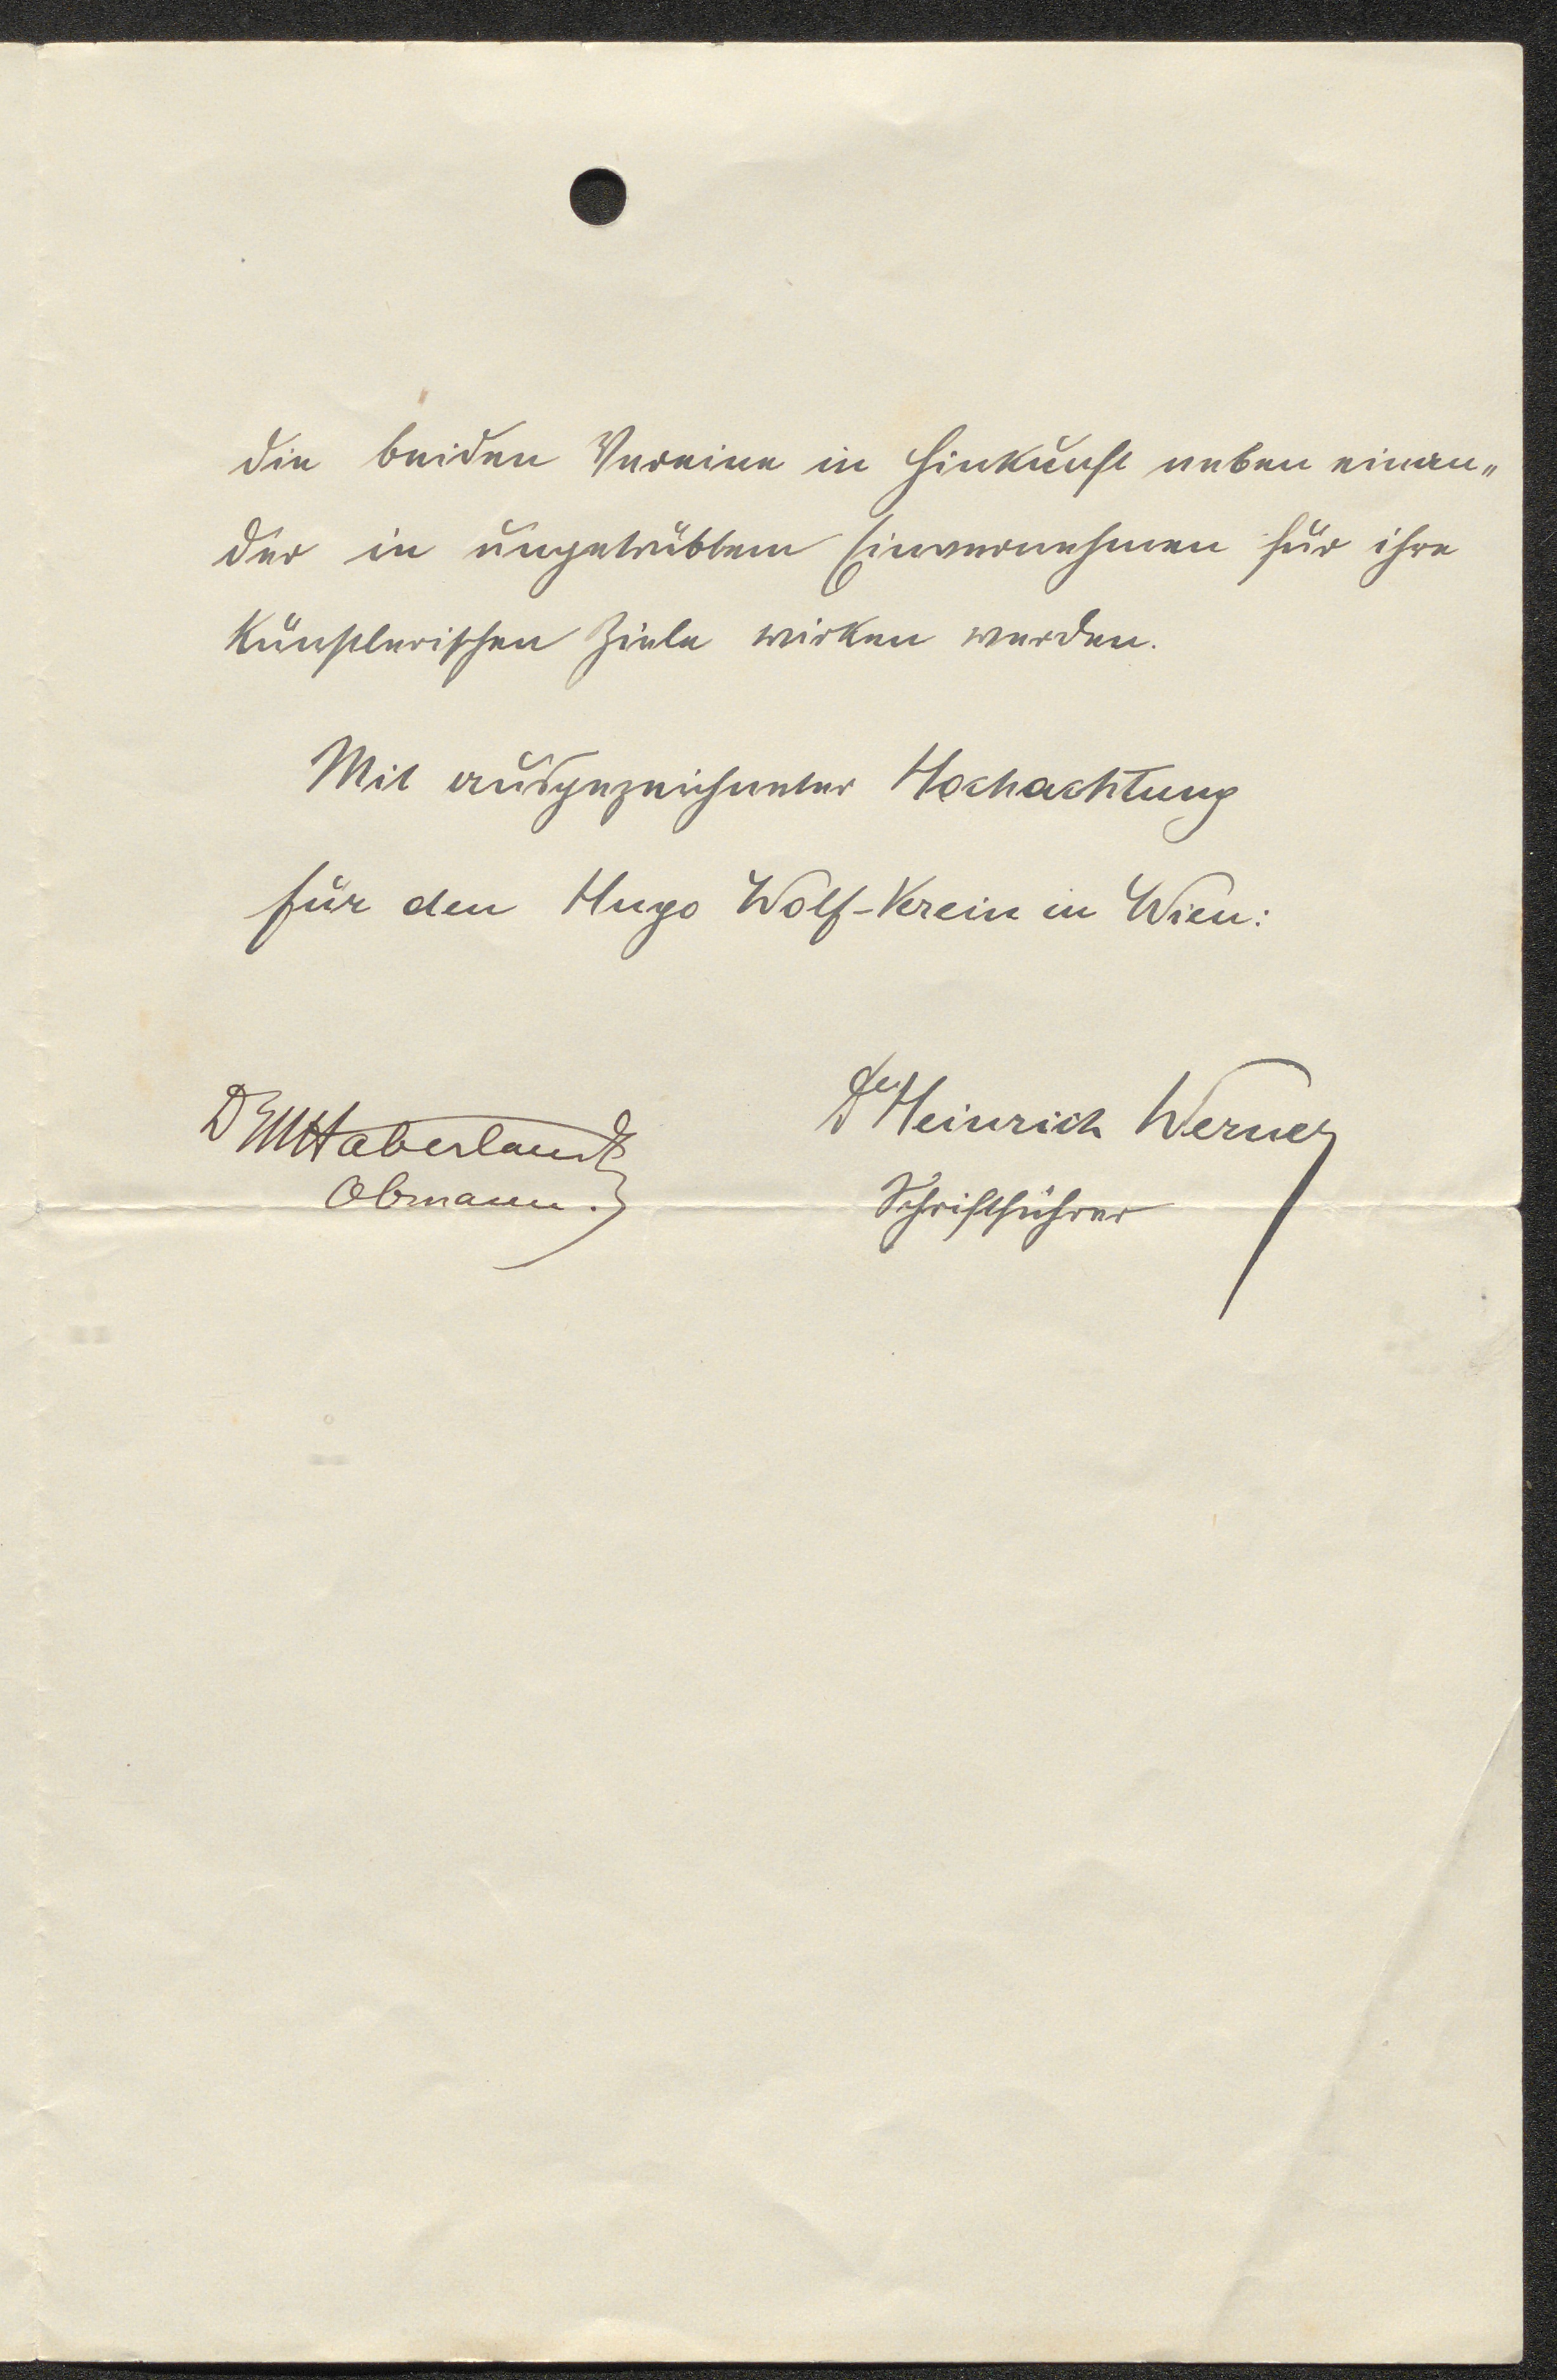 die beiden Vereine in Hinkunft neben einan„
der in ungetrübtem Einvernehmen für ihre
künstlerischen Ziele wirken werden.
Mit ausgezeichneter Hochachtung
für den Hugo Wolf-Verein in Wien:
Dr Heinrich Werner
Schriftführer
D M Haberlandt
Obmann.